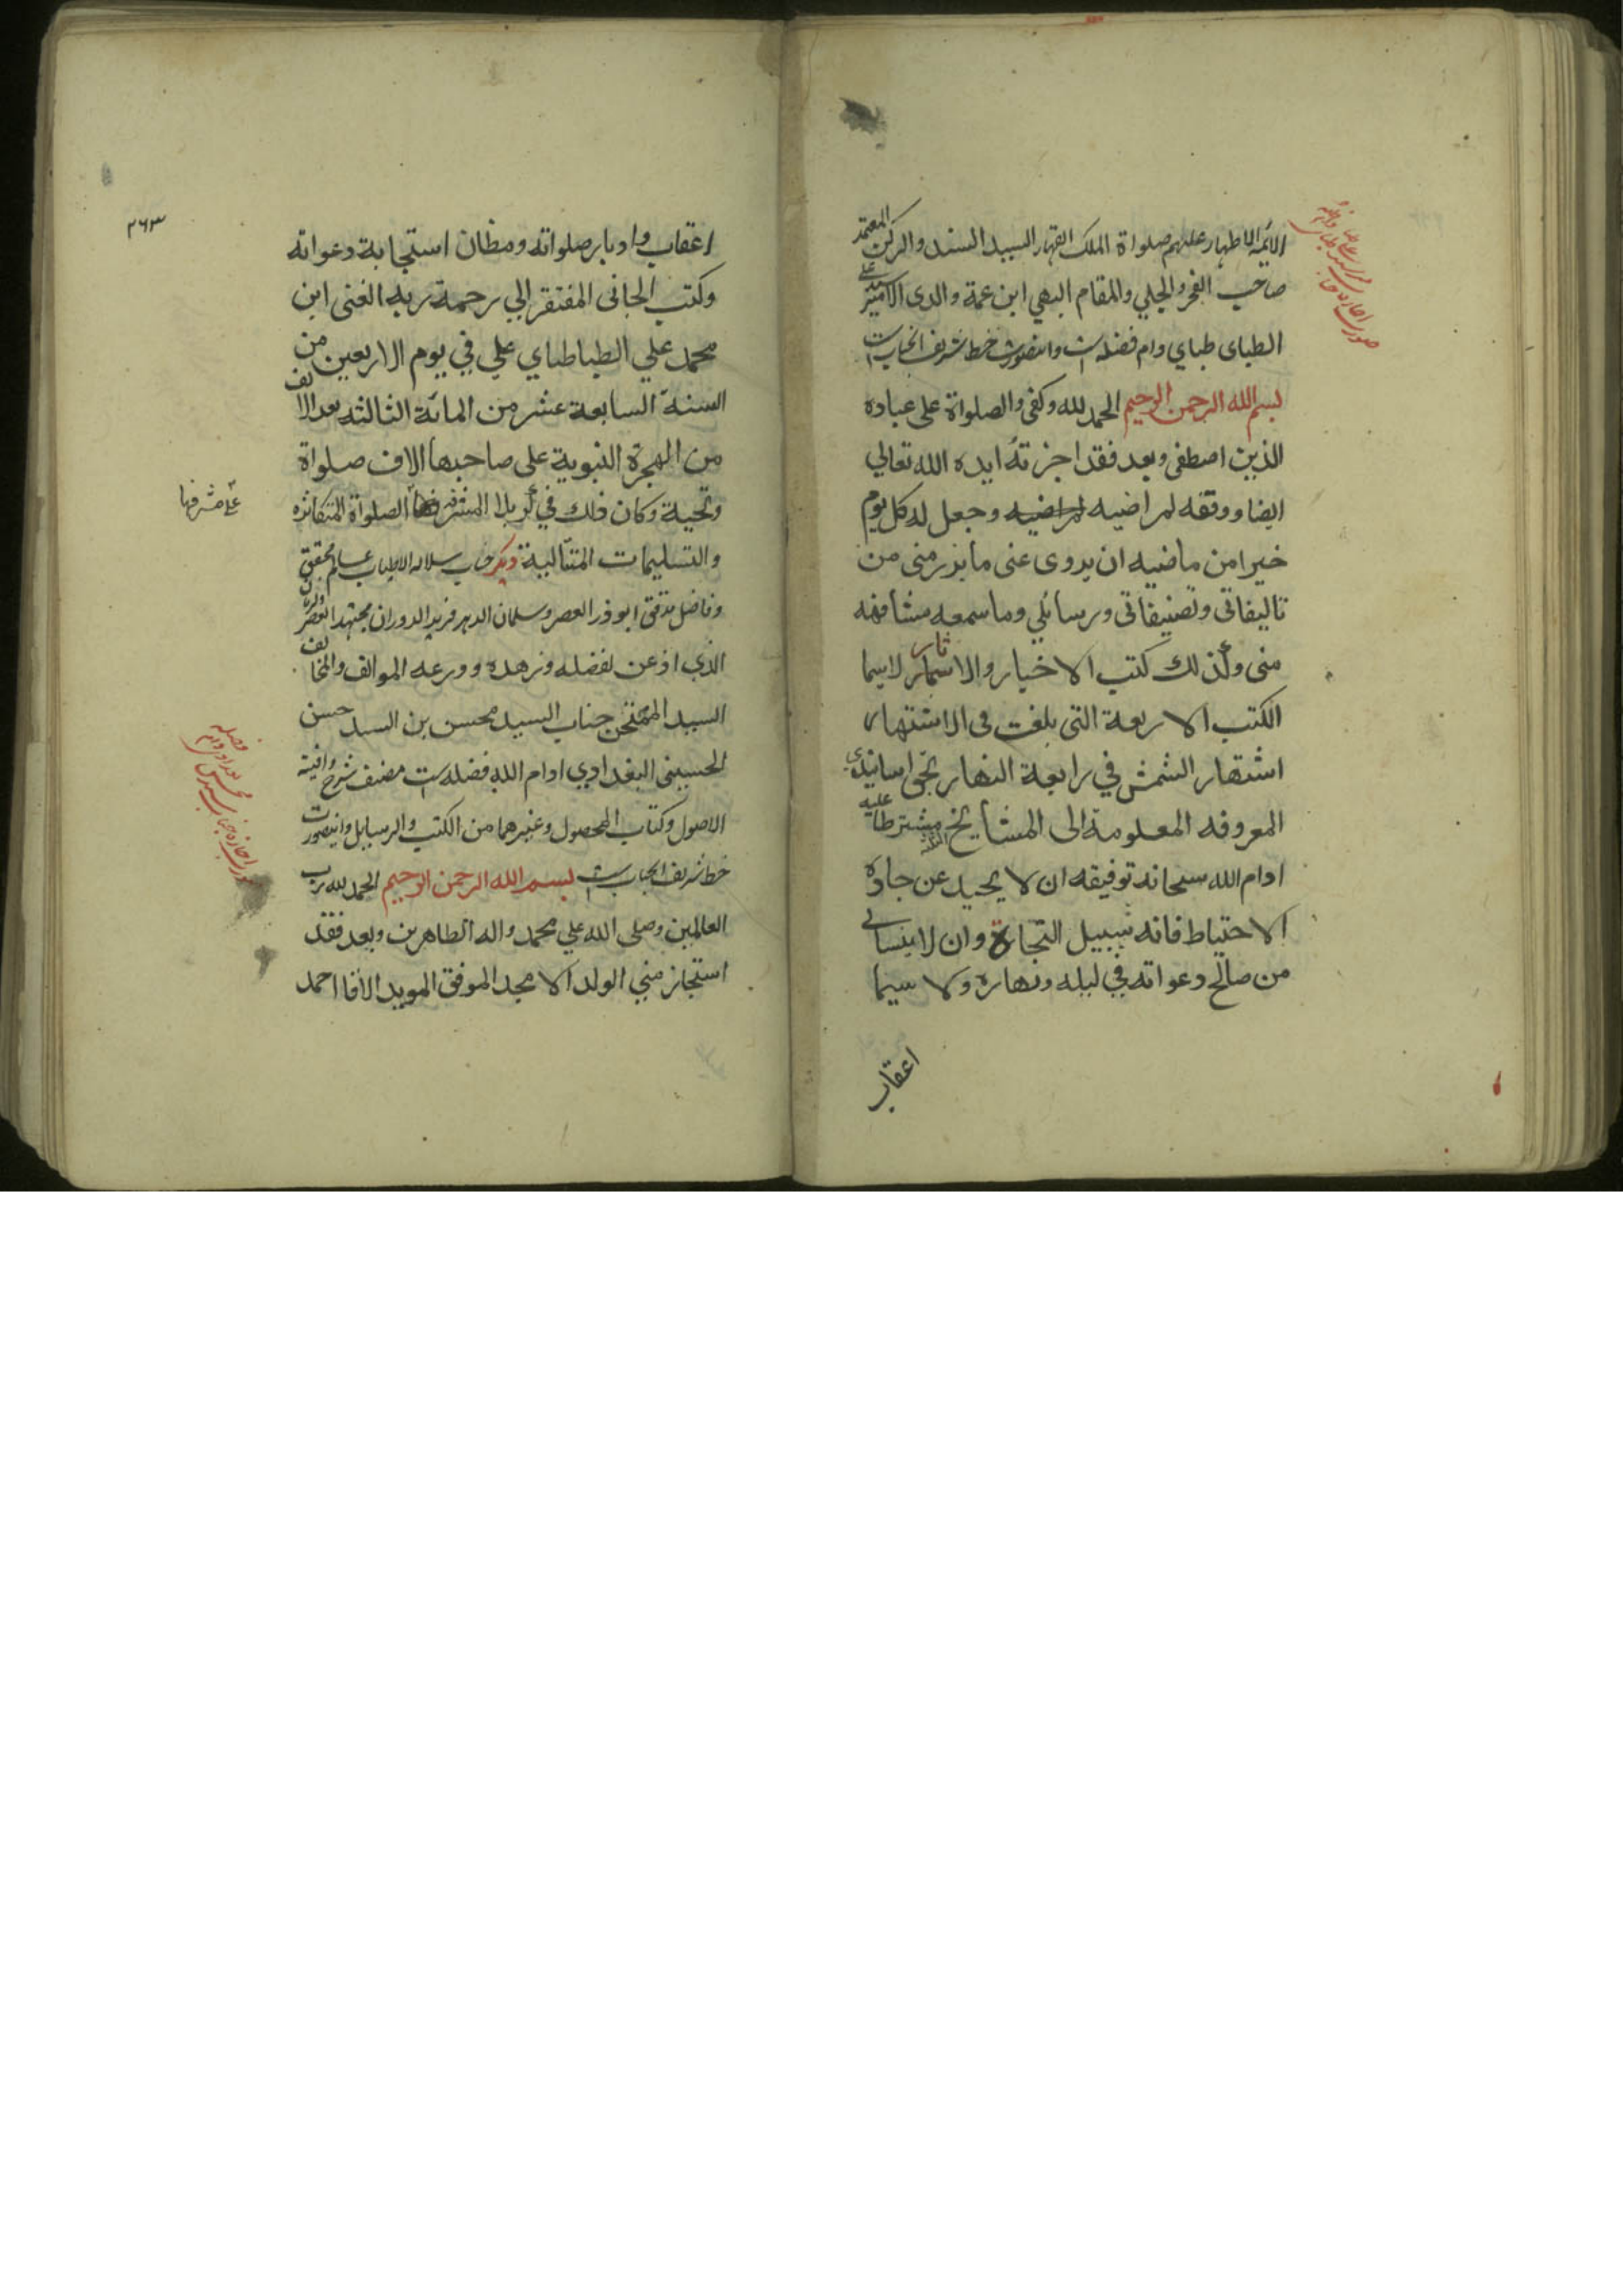 الائمه الاطهار عليهم صلواة الملك القهار السيد السند والركن المعتمد
صاحب الفخر الجلي والمقام البهي ابن عمة والدى الامير سيد علي
الطباى طباي دام فضله است واينصورت خط شريف انجناب است
بسم الله الرحمن الرحيم الحمد لله وكفى والصلواة على عباده
الذين اصطفى وبعد فقد اجزته ايده الله تعالي
ايضا ووفقه لمراضيه لمراضيه وجعل له كل يوم
خيرا من ماضيه ان يروى عنى ما برز منى من
تاليفاتى وتصنيفاتى ورسائلي وما سمعه مشافهه
منى وكذلك كتب الاخيار والاثار لاسيما
الكتب الاربعة التى بلغت فى الاشتهار
اشتهار الشمش في رابعة النهار بحق اسانيدي
المعروفه المعلومة الى المشايخ مشترطا عليه
ادام الله سبحانه توفيقه ان لا يحيد عن جاده
الاحتياط فانه سبيل النجاة وان لا ينساني
من صالح دعواته في ليله ونهاره ولا سيما
اعقاب
٢٦٣
اعقاب وادبار صلواته ومظان استجابة دعواته
وكتب الجانى المفتقر الي رحمة ربه الغنى ابن
محمد علي الطباطباي علي في يوم الاربعين من
السنة السابعة عشر من المائة الثالثه بعد الالف
من الهجرة النبوية على صاحبها الاف صلواة
وتحية وكان ذلك في كربلا المشرفه الصلواة المتكاثره
على مشرفها
والتسليمات المتتالية ديكر جناب سلاله الاطياب عالم محقق
وفاضل مدقق ابوذر العصر وسلمان الدهر فريد الدوران مجتهد العصر والزمان
الذي اذعن لفضله وزهده وورعه الموالف والمخالف
السيد الممتحن جناب السيد محسن بن السيد حسن
الحسينى البغدادي ادام الله فضله است مصنف شرح وافية
الاصول وكتاب المحصول وغيرهما من الكتب والرسايل واينصورت
خط شريف انجناب است بسم الله الرحمن الرحيم الحمد لله رب
العالمين وصلى الله علي محمد واله الطاهرين وبعد فقد
استجاز مني الولد الامجد الموفق المويد الاقا احمد